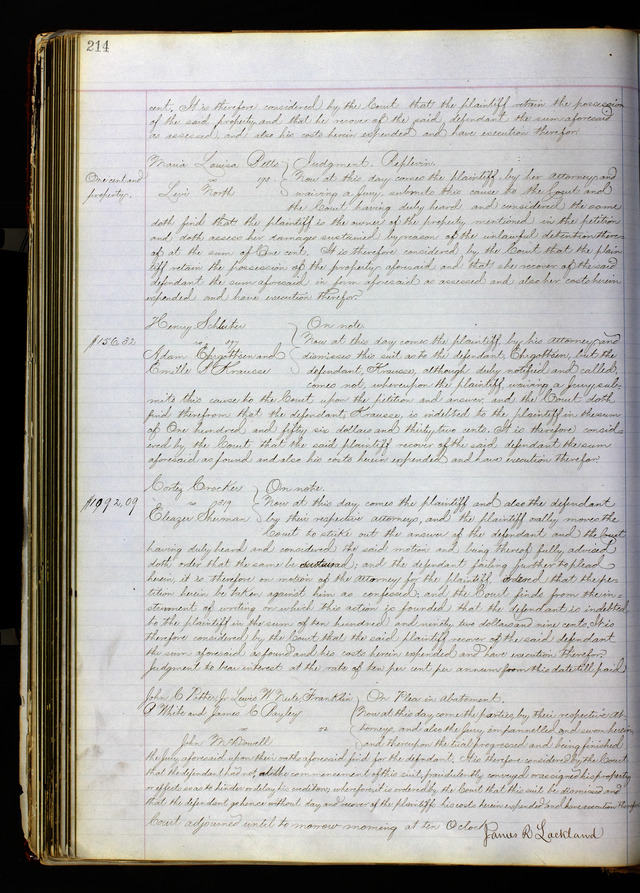 214
cent. It is therefore considered by the Court that the plaintiff retain the possession
of the said property and that he recover of the said defendant the sum aforesaid
as assessed and also his costs herein expended and have execution therefor.
Maria Louisa Petts } Judgment. Replevin.
One cent and property.
vs Now at this day comes the plaintiff by her attorney and
Levi North waiving a Jury submits this cause to the Court and
the Court having duly heard and considered the same
doth find that the plaintiff is the owner of the property mentioned in the petition
and doth assess her damages sustained by reason of the unlawful detention there-
of at the sum of One cent. It is therefore considered by the Court that the plain
tiff retain the possession of the property aforesaid and that she recover of the said
defendant the sum aforesaid in form aforesaid as assessed and also her costs herein
expended and have execution therefor.
Henry Schluter } On note.
$156.32
vs Now at this day comes the plaintiff by his attorney and
Adam Ehrgottsen and dismisses this suit as to the defendant, Ehrgottsen, but the
Emille P Krausse defendant, Krausse, although duly notified and called,
comes not, whereupon the plaintiff waiving a jury, sub-
mits this cause to the Court upon the petition and answer, and the Court doth
find therefrom that the defendant, Krausse, is indebted to the plaintiff in the sum
of One hundred and fifty six dollars and thirty two cents. It is therefore consid-
ered by the Court that the said plaintiff recover of the said defendant the sum
aforesaid as found and also his costs herein expended and have execution therefor.
Cortez Crocker } On note.
$1092.09
vs Now at this day comes the plaintiff and also the defendant
Eleazer Sherman by their respective attorneys, and the plaintiff orally moves the
Court to strike out the answer of the defendant and the Court
having duly heard and considered the said motion and being thereof fully advised
doth order that the same be sustained; and the defendant failing further to plead
herein, it is therefore on motion of the attorney for the plaintiff ordered that the pe-
tition herein be taken against him as confessed; and the Court finds from the in-
strument of writing on which this action is founded that the defendant is indebted
to the plaintiff in the sum of ten hundred and ninety two dollars and nine cents. It is
therefore considered by the Court that the said plaintiff recover of the said defendant
the sum aforesaid as found and his costs herein expended and have execution therefor.
Judgment to bear interest at the rate of ten per cent per annum from this date till paid
John C Potter Jr Lewis W Nute, Franklin } On Plea in Abatement.
D White and James C Bayley Now at this day come the parties, by their respective At-
vs torneys, and also the jury impannelled and sworn herein,
John McDowell and thereupon the trial progressed and being finished
the Jury aforesaid upon their oath aforesaid find for the defendant. It is therefore considered by the Court
that the defendant had not, at the commencement of this suit, fraudulently conveyed or assigned his property
or effects so as to hinder or delay his creditors, wherefore it is ordered by the Court that this suit be dismissed and
that the defendant go hence without day and recover of the plaintiffs his costs herein expended and have execution therefor
Court adjourned until to morrow morning at ten O'clock.
James R Lackland